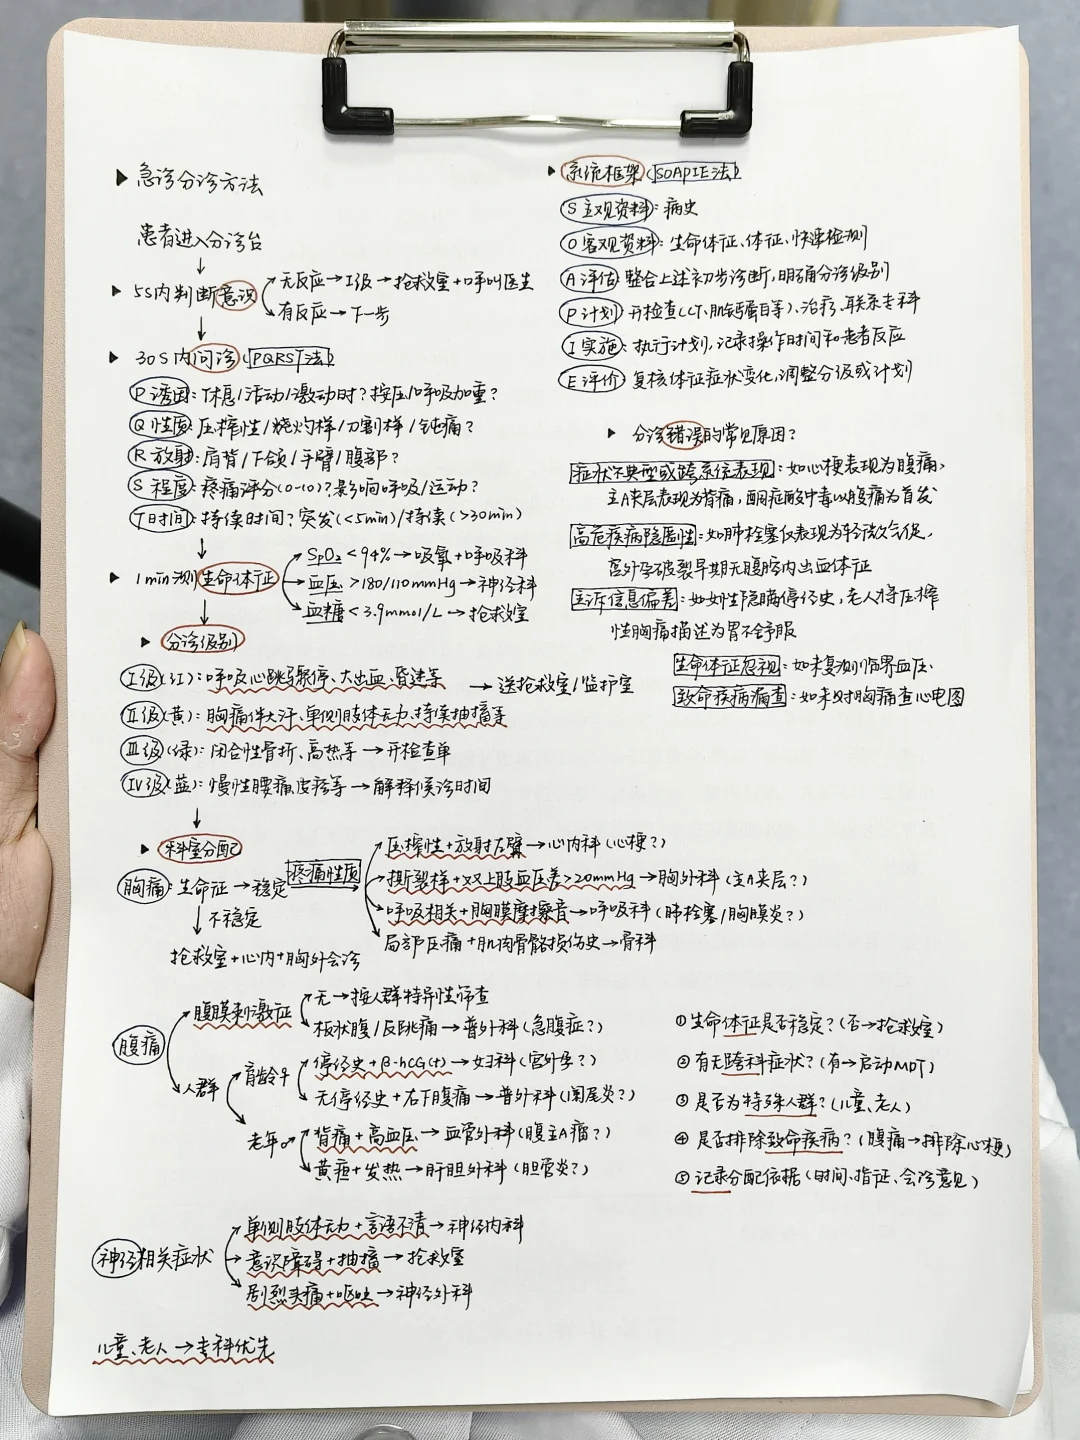 ▶ 急诊分诊方法
患者进入分诊台
↓
▶ 5S内判断意识
无反应→I级→抢救室+呼叫医生
有反应→下一步
↓
▶ 30S内问诊(PQRST法)
P诱因:休息/活动/激动时?按压/呼吸加重?
Q性质:压榨性/烧灼样/刀割样/钝痛?
R放射:肩背/下颌/手臂/腹部?
S程度:疼痛评分(0-10)?影响呼吸/运动?
T时间:持续时间?突发(<5min)/持续(>30min)
↓
▶ 1min测生命体征
SpO₂<94%→吸氧+呼吸科
血压>180/110mmHg→神经科
血糖<3.9mmol/L→抢救室
↓
▶ 分诊级别
I级(红):呼吸心跳骤停、大出血、昏迷等 →送抢救室/监护室
II级(黄):胸痛伴大汗、单侧肢体无力、持续抽搐等
III级(绿):闭合性骨折、高热等→开检查单
IV级(蓝):慢性腰痛、皮疹等→解释候诊时间
↓
▶ 科室分配
胸痛:生命征→稳定 疼痛性质
↓不稳定
抢救室+心内+胸外会诊
压榨性+放射左臂→心内科(心梗?)
撕裂样+双上肢血压差>20mmHg→胸外科(主A夹层?)
呼吸相关+胸膜摩擦音→呼吸科(肺栓塞/胸膜炎?)
局部压痛+肌肉骨骼损伤史→骨科
腹痛
腹膜刺激征
无→按人群特异性筛查
板状腹/反跳痛→普外科(急腹症?)
人群
育龄♀
停经史+β-hCG(+)→妇科(宫外孕?)
无停经史+右下腹痛→普外科(阑尾炎?)
老年♂
背痛+高血压→血管外科(腹主A瘤?)
黄疸+发热→肝胆外科(胆管炎?)
神经相关症状
单侧肢体无力+言语不清→神经内科
意识障碍+抽搐→抢救室
剧烈头痛+呕吐→神经外科
儿童、老人→专科优先
▶ 系统框架(SOAPIE法)
S主观资料:病史
O客观资料:生命体征、体征、快速检测
A评估:整合上述初步诊断,明确分诊级别
P计划:开检查(CT、肌钙蛋白等)、治疗、联系专科
I实施:执行计划,记录操作时间和患者反应
E评价:复核体征症状变化,调整分级或计划
▶ 分诊错误的常见原因?
症状不典型或跨系统表现:如心梗表现为腹痛,
主A夹层表现为背痛,酮症酸中毒以腹痛为首发
高危疾病隐匿性:如肺栓塞仅表现为轻微气促,
宫外孕破裂早期无腹腔内出血体征
主诉信息偏差:如女性隐瞒停经史,老人将压榨
性胸痛描述为胃不舒服
生命体征忽视:如未复测临界血压.
致命疾病漏查:如未对胸痛查心电图
①生命体征是否稳定?(否→抢救室)
②有无跨科症状?(有→启动MDT)
③是否为特殊人群?(儿童、老人)
④是否排除致命疾病?(腹痛→排除心梗)
⑤记录分配依据(时间、指征、会诊意见)